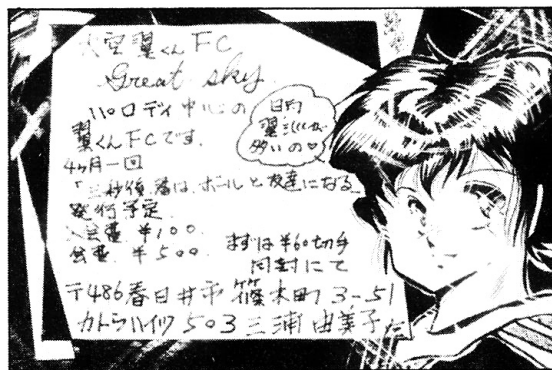 大空翼くんFC
Great sky
パロディ中心の
翼くんFCです.
日向
翼
多いの♡
4ヶ月一回
「三秒後 君は、ボールと友達になる」
発行予定
入会費 ¥100.
会費 ¥500
まずは¥60切手
同封にて
〒486春日井市篠木町3-51
カトウハイツ503三浦由美子